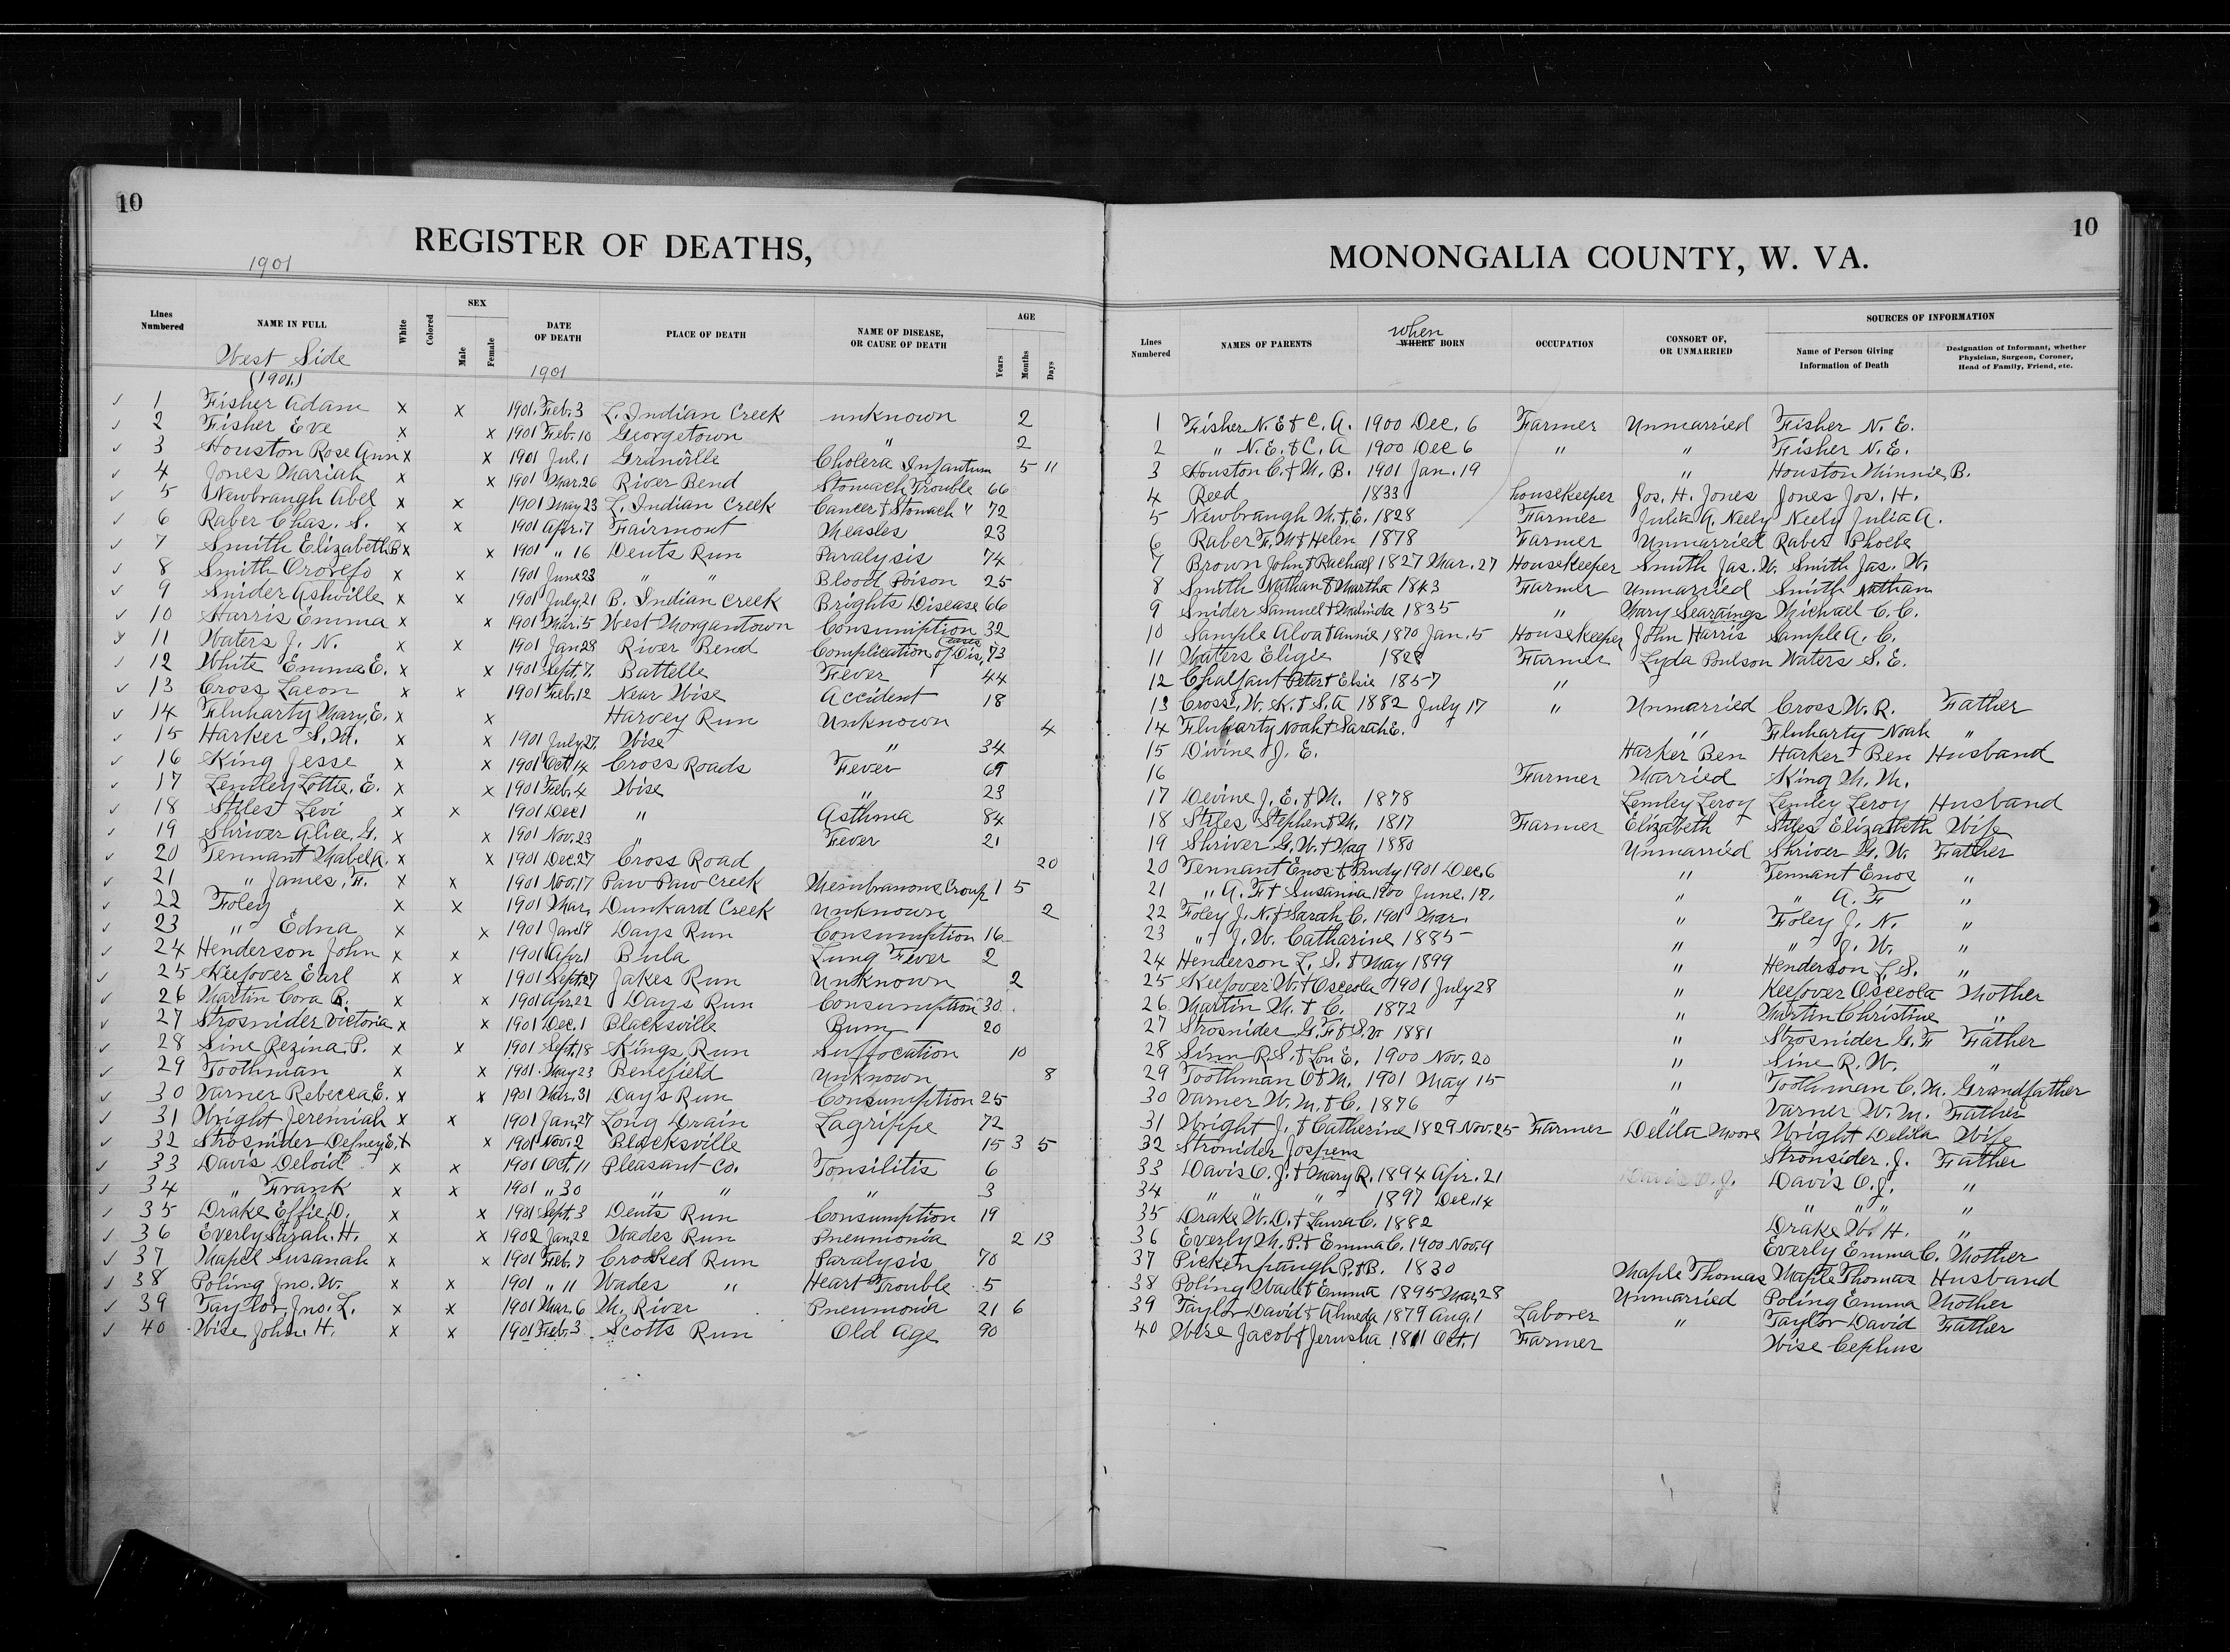 10
REGISTER OF DEATHS,
1901
Lines Numbered NAME IN FULL White Colored SEX Male Female DATE OF DEATH PLACE OF DEATH NAME OF DISEASE, OR CAUSE OF DEATH AGE Years Months Days
West Side
(1901)
1901
1 Fisher Adam x x 1901 Feb. 3 L. Indian Creek unknown 2
2 Fisher Eve x x 1901 Feb. 10 Georgetown " 2
3 Houston Rose Ann x x 1901 Jul. 1 Granville Cholera Infantum 5 11
4 Jones Mariah x x 1901 Mar. 26 River Bend Stomach Trouble 66
5 Newbraugh Abel x x 1901 May 23 L. Indian Creek Cancer & Stomach " 72
6 Raber Chas. S. x x 1901 Apr. 7 Fairmont Measles 23
7 Smith Elizabeth B x x 1901 " 16 Dents Run Paralysis 74
8 Smith x x 1901 June 23 " " Blood Poison 25
9 Snider Ashville x x 1901 July 21 B. Indian Creek Brights Disease 66
10 Harris Emma x x 1901 Mar. 5 West Morgantown Consumption 32
11 Waters J. N. x x 1901 Jan 28 River Bend Complication of Dis. 73
12 White Emma E. x x 1901 Sept. 7. Battelle Fever 44
13 Cross Lacon x x 1901 Feb. 12 Near Wise Accident 18
14 Fluharty Mary E. x x Harvey Run Unknown 4
15 Harker S. M. x x 1901 July 27. Wise " 34
16 King Jesse x x 1901 Oct 14 Cross Roads Fever
17 Lemley Lottie, E. x x 1901 Feb. 4 Wise " 23
18 Stiles Levi x x 1901 Dec 1 " Asthma 84
19 Shriver Alice, G. x x 1901 Nov. 23 " Fever 21
20 Tennant Mabel A. x x 1901 Dec. 27 Cross Road 20
21 " James, F. x x 1901 Nov. 17 Paw Paw Creek Membranous Croup 1 5
22 Foley x x 1901 Mar, Dunkard Creek Unknown 2
23 " Edna x x 1901 Jan 19 Days Run Consumption 16
24 Henderson John x x 1901 Apr. 1 Bula Lung Fever 2
25 Keefover Earl x x 1901 Sept. 27 Jakes Run Unknown 2
26 Martin Cora B. x x 1901 Apr. 22 Days Run Consumption 30
27 Strosnider Victoria x x 1901 Dec. 1 Blacksville Burn 20
28 Sine Rezina, P. x x 1901 Sept. 18 Kings Run Suffocation 10
29 Toothman x x 1901 May 23 Benefield Unknown 8
30 Varner Rebecca E. x x 1901 Mar. 31 Day's Run Consumption 25
31 Wright Jeremiah x x 1901 Jan, 27 Long Drain Lagrippe 72
32 Strosnider Defney E. x x 1901 Nov. 2 Blacksville 15 3 5
33 Davis Deloid x x 1901 Oct. 11 Pleasant Co. Tonsilitis 6
34 " Frank x x 1901 " 30 " " " 3
35 Drake Effie D. x x 1901 Sept. 3 Dents Run Consumption 19
36 Everly Sarah. H. x x 1902 Jan, 22 Wades Run Pneumonia 2 13
37 Mapel Susanah x x 1901 Feb. 7 Crooked Run Paralysis 70
38 Poling Jno. W. x x 1901 " 11 Wades " Heart Trouble 5
39 Taylor Jno. L. x x 1901 Mar. 6 M. River Pneumonia 21 6
40 Wise John. H. x x 1901 Feb. 3 Scotts Run Old Age 90
10
MONONGALIA COUNTY, W. VA.
Lines Numbered NAMES OF PARENTS when WHERE BORN OCCUPATION CONSORT OF, OR UNMARRIED SOURCES OF INFORMATION Name of Person Giving Information of Death Designation of Informant, whether Physician, Surgeon, Coroner, Head of Family, Friend, etc.
1 Fisher N. E & C. A. 1900 Dec. 6 Farmer Unmarried Fisher N. E.
2 " N. E. & C. A 1900 Dec 6 " " Fisher N. E.
3 Houston C. & M. B. 1901 Jan. 19 " Houston Minnie, B.
4 Reed 1833 housekeeper Jos. H. Jones Jones Jos. H.
5 Newbraugh M. & E. 1828 Farmer Julia A. Neely Neely Julia A.
6 Raber F. M & Helen 1878 Farmer Unmarried Raber Phoebe
7 Brown John & Rachael 1827 Mar. 27 Housekeeper Smith Jas. W. Smith Jas. W.
8 Smith Nathan & Martha 1843 Farmer Unmarried Smith Nathan
9 Snider Samuel & Malinda 1835 " Mary Michael C. C.
10 Sample Alva & Annie 1870 Jan. 5 Housekeeper John Harris Sample A. C.
11 Waters Eligie 1828 Farmer Lyda Bulson Waters S. E.
12 Chalfant Peter & Elsie 1857 "
13 Cross, W. K. & S. A 1882 July 17 " Unmarried Cross W. R. Father
14 Fluharty Noah & Sarah E. " Fluharty Noah "
15 Divine J. E. Harker Ben Harker Ben Husband
16 Farmer Married King M. M.
17 Devine J. E. & M. 1878 Lemley Leroy Lemley Leroy Husband
18 Stiles Stephen & M. 1817 Farmer Elizabeth Stiles Elizabeth Wife
19 Shriver G. W. & Mag 1880 Unmarried Shriver G. W. Father
20 Tennant Enos & Prudy 1901 Dec. 6 " Tennant Enos "
21 " A. F & Susanna 1900 June. 17. " " A. F "
22 Foley J. N. & Sarah C. 1901 Mar. " Foley J. N. "
23 " J. W. Catharine 1885 " " J. W. "
24 Henderson L. S. & May 1899 " Henderson L. S. "
25 Keefover W. & Osceola 1901 July 28 " Keefover Osceola Mother
26 Martin M. & C. 1872 " Martin Christine "
27 Strosnider G. F & S. V. 1881 " Strosnider G. F Father
28 Sinn R. S. & Lou E. 1900 Nov. 20 " Sine R. W. "
29 Toothman O & M. 1901 May 15 " Toothman C. M. Grandfather
30 Varner W. M. & C. 1876 " Varner W. M. Father
31 Wright J. & Catherine 1829 Nov. 25 Farmer Delila Moore Wright Delila Wife
32 Stronider Stronsider. J. Father
33 Davis C. J. & Mary R. 1894 Apr. 21 Davis C. J. Davis C. J. "
34 " " " 1897 Dec. 14 " " " "
35 Drake W. D. & Laura C. 1882 Drake W. H. "
36 Everly M. P. & Emma C. 1900 Nov. 9 Everly Emma C. Mother
37 Pickenpaugh P. & B. 1830 Maple Thomas Maple Thomas Husband
38 Poling Wade & Emma 1895 Mar, 28 Unmarried Poling Emma Mother
39 Taylor David & Almeda 1879 Aug. 1 Laborer " Taylor David Father
40 Wise Jacob & Jerusha 1811 Oct. 1 Farmer Wise Cephus